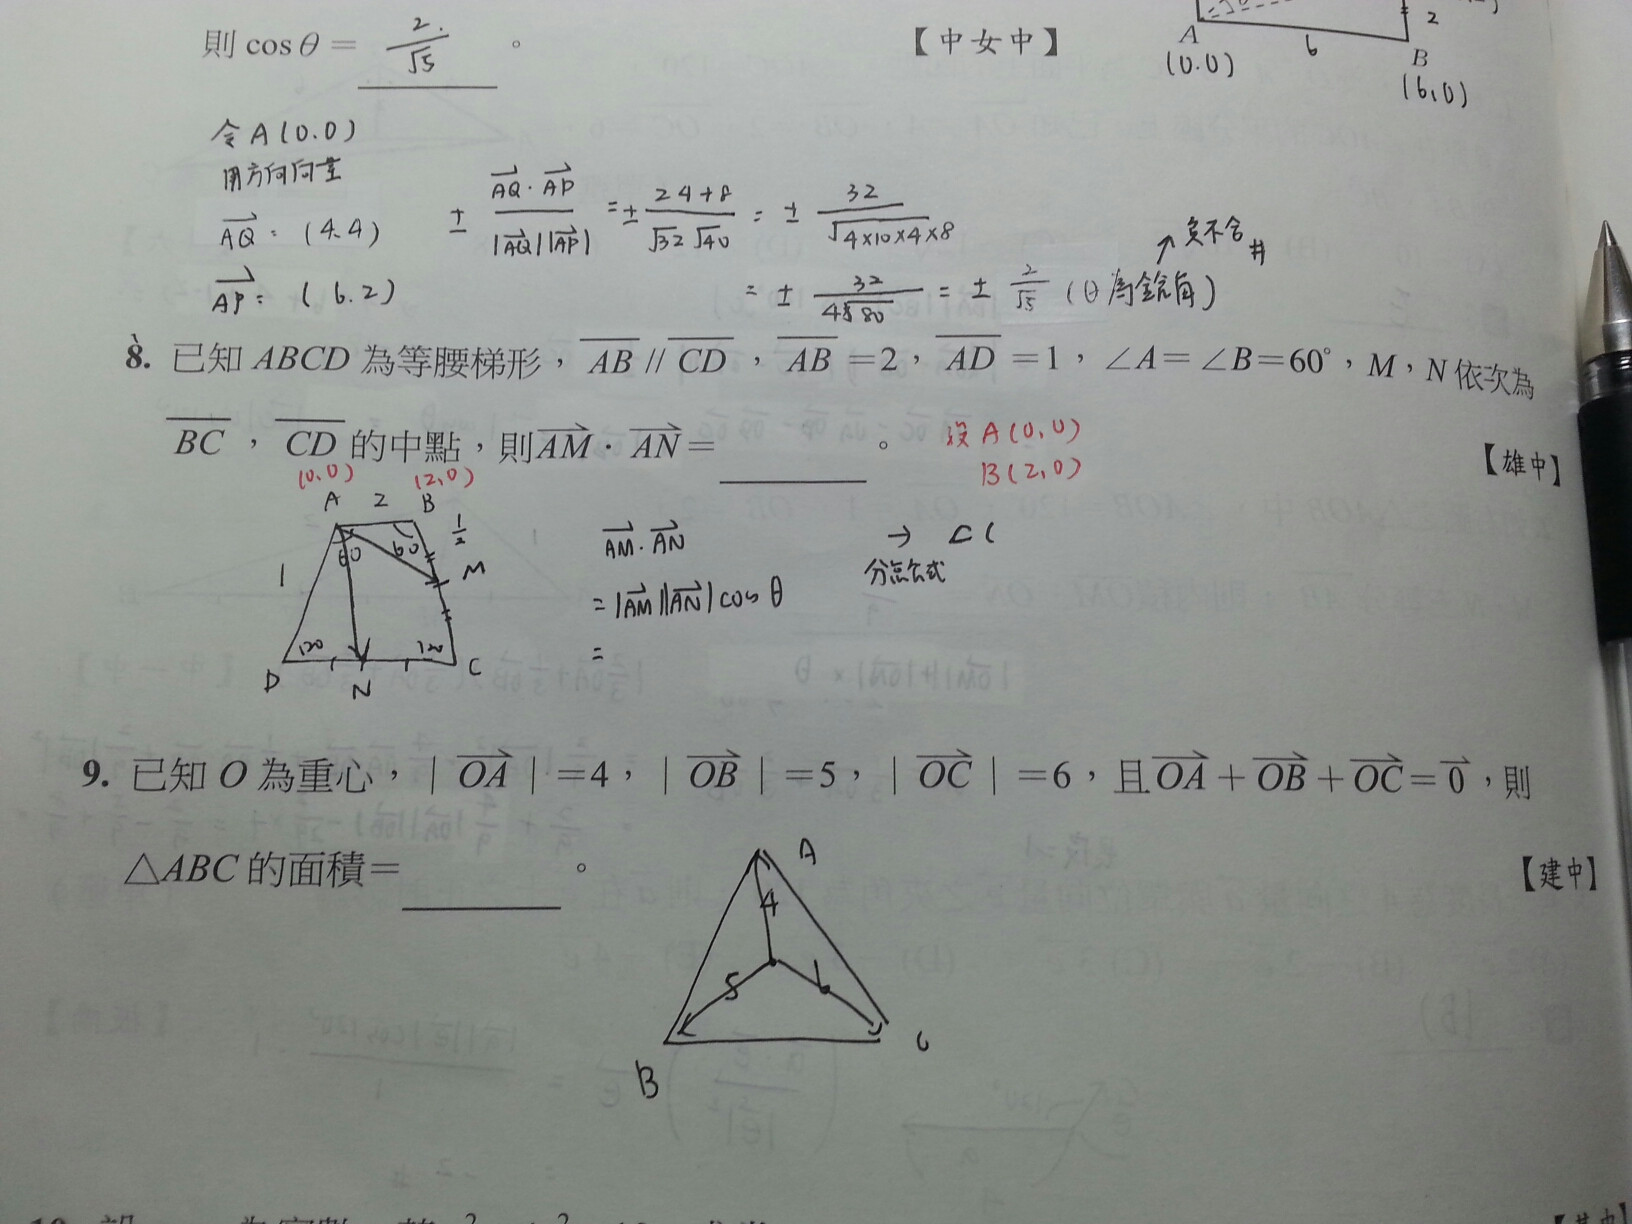 則 cosθ = 2/√5 。 【中女中】
A (0.0) 6 B (6,0) 2
令 A(0.0)
用方向向量
AQ: (4.4)
AP: (6.2)
± AQ·AP / |AQ||AP| = ± 24+8 / √32 √40 = ± 32 / √4×10×4×8
= ± 32 / 4√80 = ± 2/√5 (θ為銳角)
↗負不合 #
8. 已知 ABCD 為等腰梯形，AB // CD，AB = 2，AD = 1，∠A = ∠B = 60°，M，N 依次為
BC，CD 的中點，則 AM · AN = 。 【雄中】
設 A(0,0)
B(2,0)
(0,0) (2,0)
A 2 B
1/2
60 60
1 M
120 120
D N C
AM · AN
= |AM||AN| cos θ
=
→ C(
分點公式
9. 已知 O 為重心，| OA | = 4，| OB | = 5，| OC | = 6，且 OA + OB + OC = 0，則
△ABC 的面積 = 。 【建中】
A
4
5 6
B C